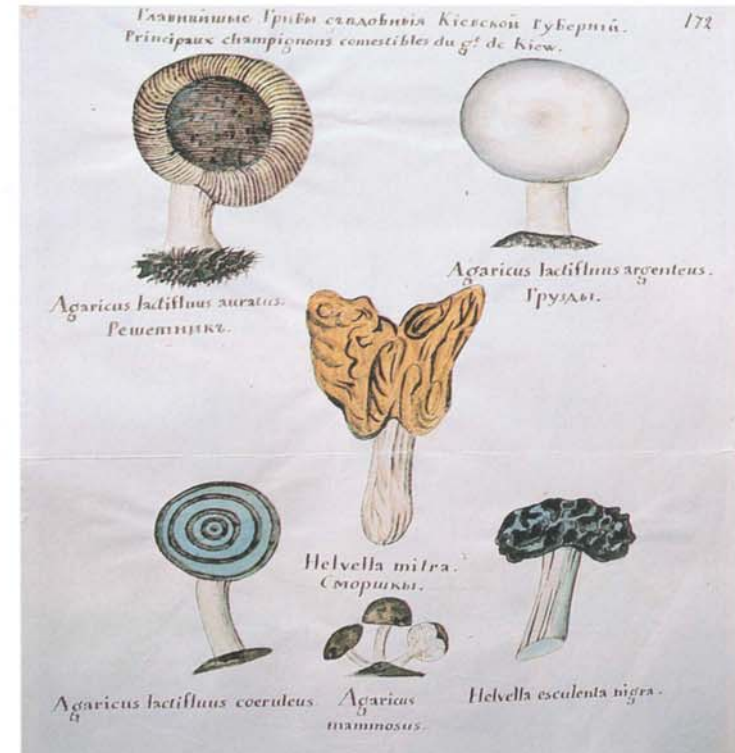 Главнѣйшые Грибы сѣѣдобныя Кіевской Губерніи.
172
Principaux champignons comestibles du gt. de Kiew.
Agaricus lactifluus auratus.
Решетникъ.
Agaricus lactifluus argenteus.
Грузды.
Helvella mitra.
Сморшкы.
Agaricus lactifluus coeruleus
Agaricus
mammosus.
Helvella esculenta nigra.